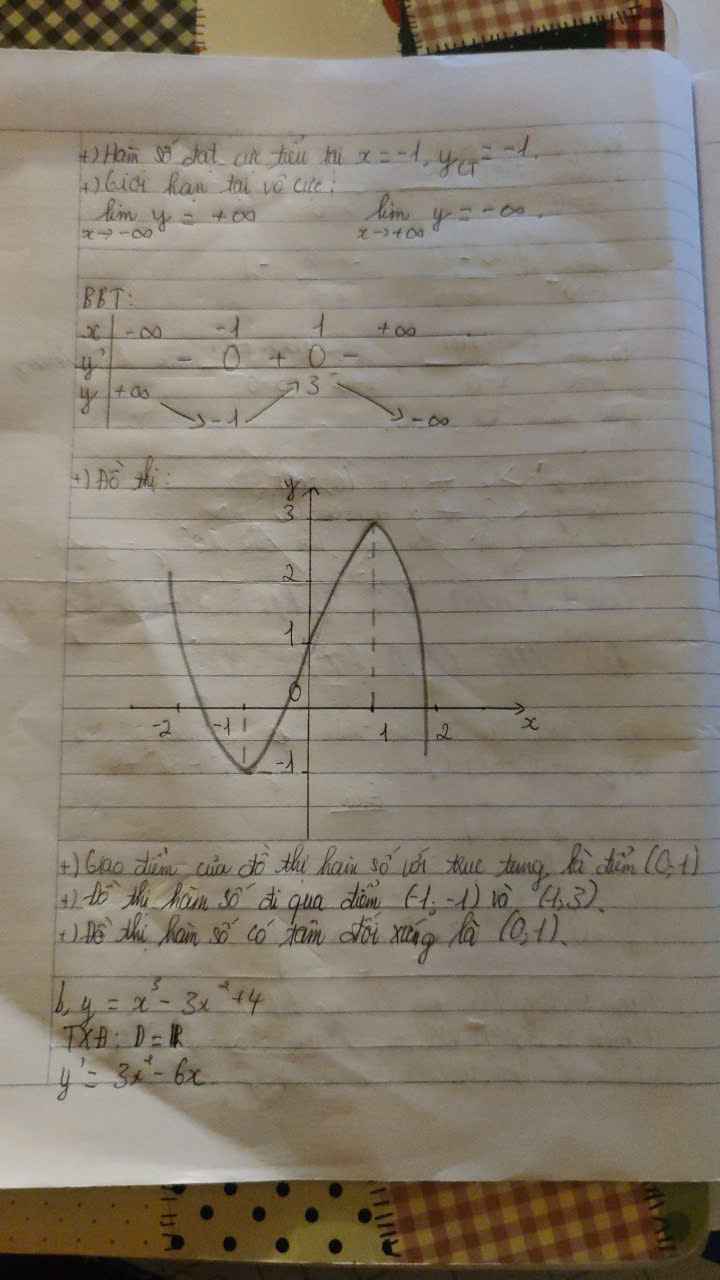 +) Hàm số đạt cực tiểu tại x = -1, y_CT = -1.
+) Giới hạn tại vô cực:
lim y = +∞ lim y = -∞.
x→-∞ x→+∞
BBT:
x -∞ -1 1 +∞
y' - 0 + 0 -
y +∞ -1 3 -∞
+) Đồ thị:
y
3
2
1
0
-2 -1 1 2 x
-1
+) Giao điểm của đồ thị hàm số với trục tung là điểm (0;1)
+) Đồ thị hàm số đi qua điểm (-1; -1) và (1;3).
+) Đồ thị hàm số có tâm đối xứng là (0,1).
b, y = x³ - 3x² + 4
TXĐ: D = ℝ
y' = 3x² - 6x